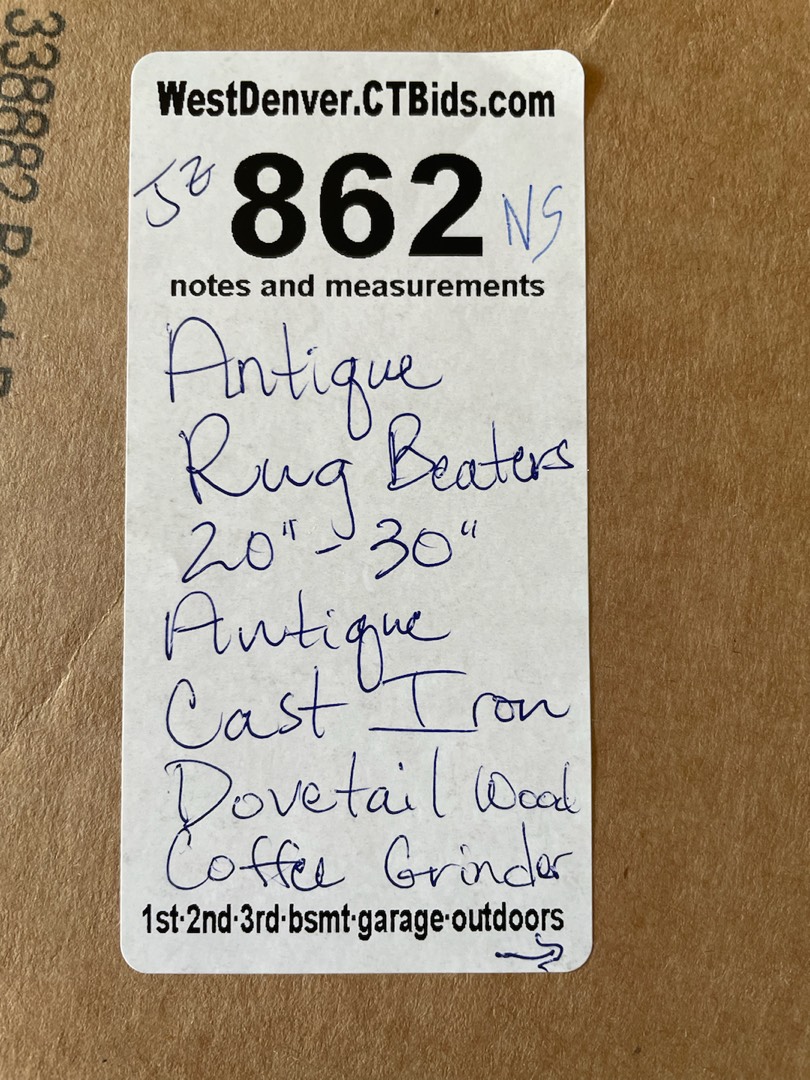 WestDenver.CTBids.com
862 NS
notes and measurements
Antique
Rug Beaters
20" - 30"
Antique
Cast Iron
Dovetail Wood
Coffee Grinder
1st·2nd·3rd·bsmt·garage·outdoors
338882